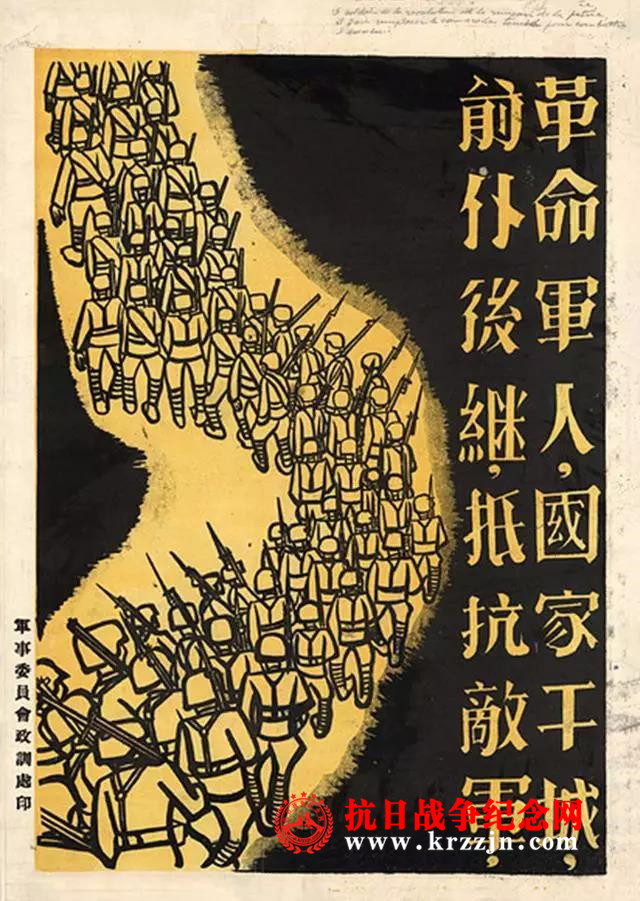 de la revolution de la patrie
remplacer le camarade pour combattre
革命軍人，國家干城，
前仆後継，抵抗敵軍，
軍事委員會政訓處印
抗日战争纪念网
www.krzzjn.com